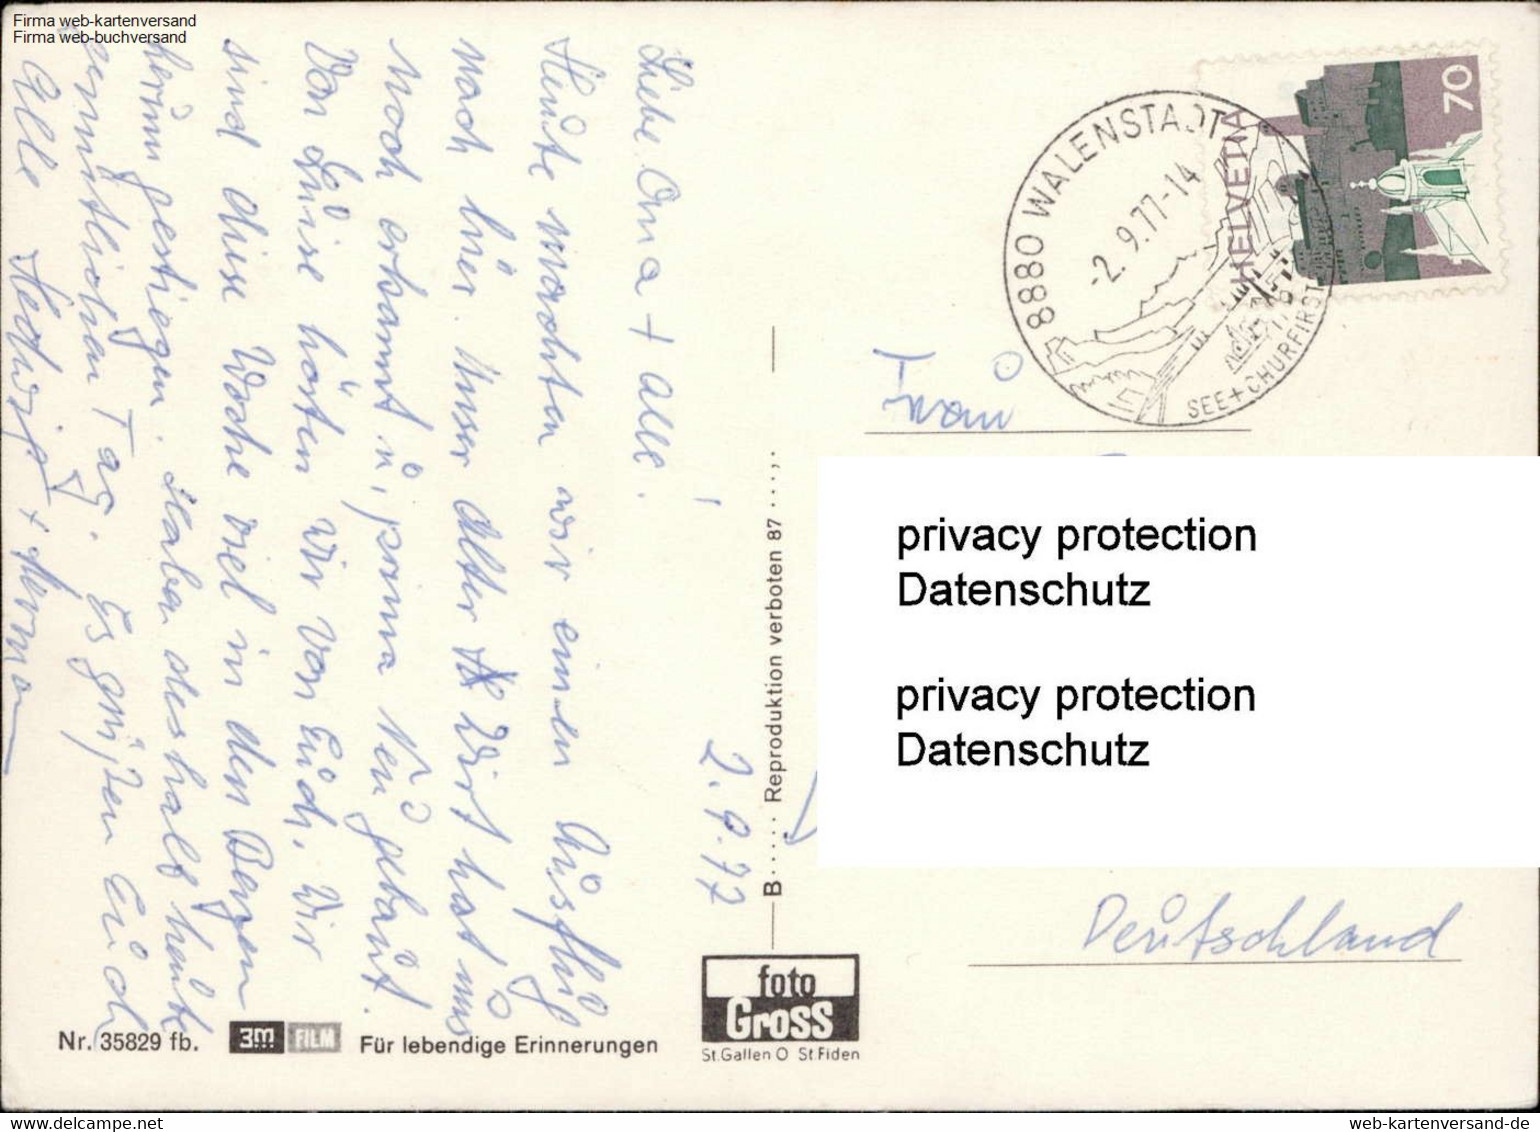 Firma web-kartenversand
Firma web-buchversand
2.9.77
Liebe Oma + alle!
Heute machten wir einen Ausflug
nach hier. Unser alter Wirt hat uns
noch erkannt u. prima Neu gebaut.
Von Luise hörten wir von Euch. Wir
sind diese Woche viel in den Bergen
herum gestiegen. Haben deshalb heute
gemütlichen Tag. Es grüßen Euch
Alle Hedwig + Herman
B..... Reproduktion verboten 87 ....
Nr. 35829 fb.
3M FILM
Für lebendige Erinnerungen
foto
Gross
St.Gallen O St.Fiden
HELVETIA
70
8880 WALENSTADT
-2. 9.77-14
SEE+CHURFIRST
Frau
privacy protection
Datenschutz
privacy protection
Datenschutz
Deutschland
www.web-kartenversand.de
web-kartenversand-de